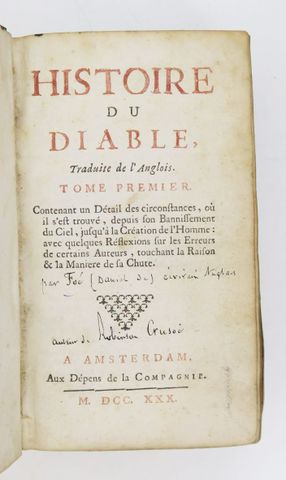 HISTOIRE
DU
DIABLE,
Traduite de l'Anglois.
TOME PREMIER.
Contenant un Détail des circonstances, où
il s'est trouvé, depuis son Bannissement
du Ciel, jusqu'à la Création de l'Homme:
avec quelques Réflexions sur les Erreurs
de certains Auteurs, touchant la Raison
& la Maniere de sa Chute.
par Foë (Daniel de) écrivain Anglais
auteur de Robinson Crusoë
A AMSTERDAM,
Aux Dépens de la COMPAGNIE.
M. DCC. XXX.